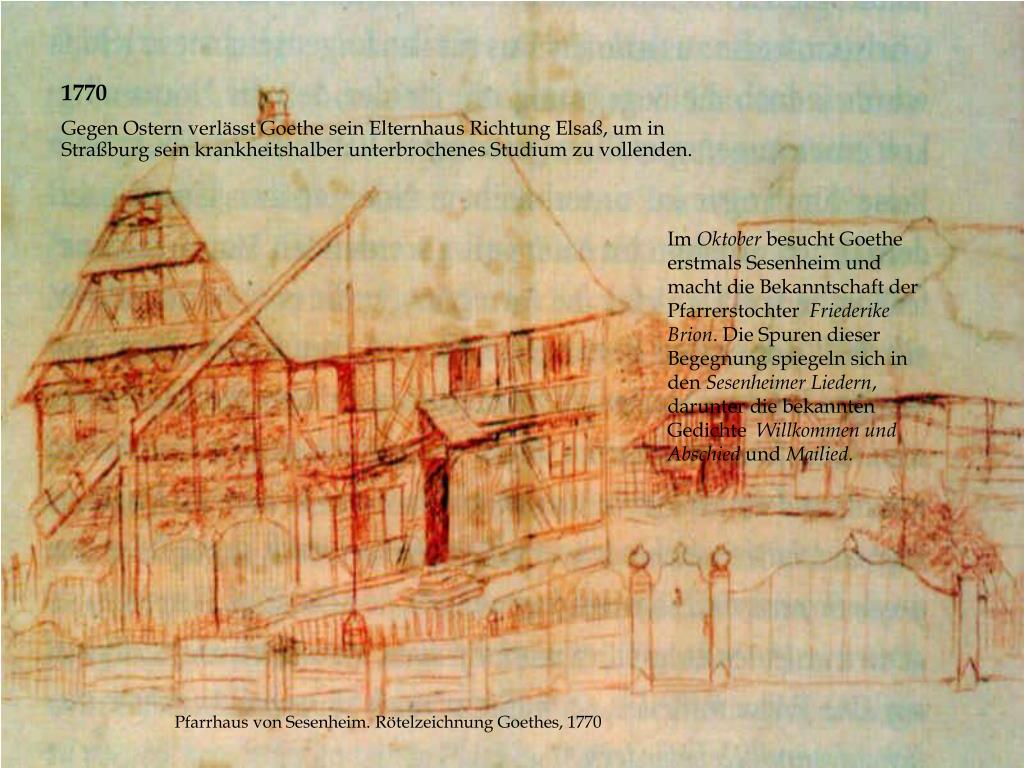 1770
Gegen Ostern verlässt Goethe sein Elternhaus Richtung Elsaß, um in
Straßburg sein krankheitshalber unterbrochenes Studium zu vollenden.
Im Oktober besucht Goethe
erstmals Sesenheim und
macht die Bekanntschaft der
Pfarrerstochter Friederike
Brion. Die Spuren dieser
Begegnung spiegeln sich in
den Sesenheimer Liedern,
darunter die bekannten
Gedichte Willkommen und
Abschied und Mailied.
Pfarrhaus von Sesenheim. Rötelzeichnung Goethes, 1770